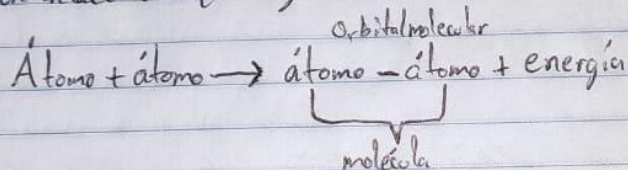 Orbital molecular
Átomo + átomo → átomo - átomo + energía
molécula